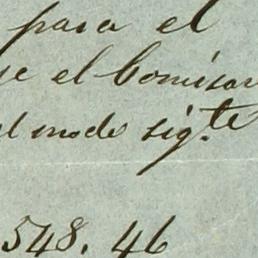 para el
se el Comisar
el modo sig.te
548. 46